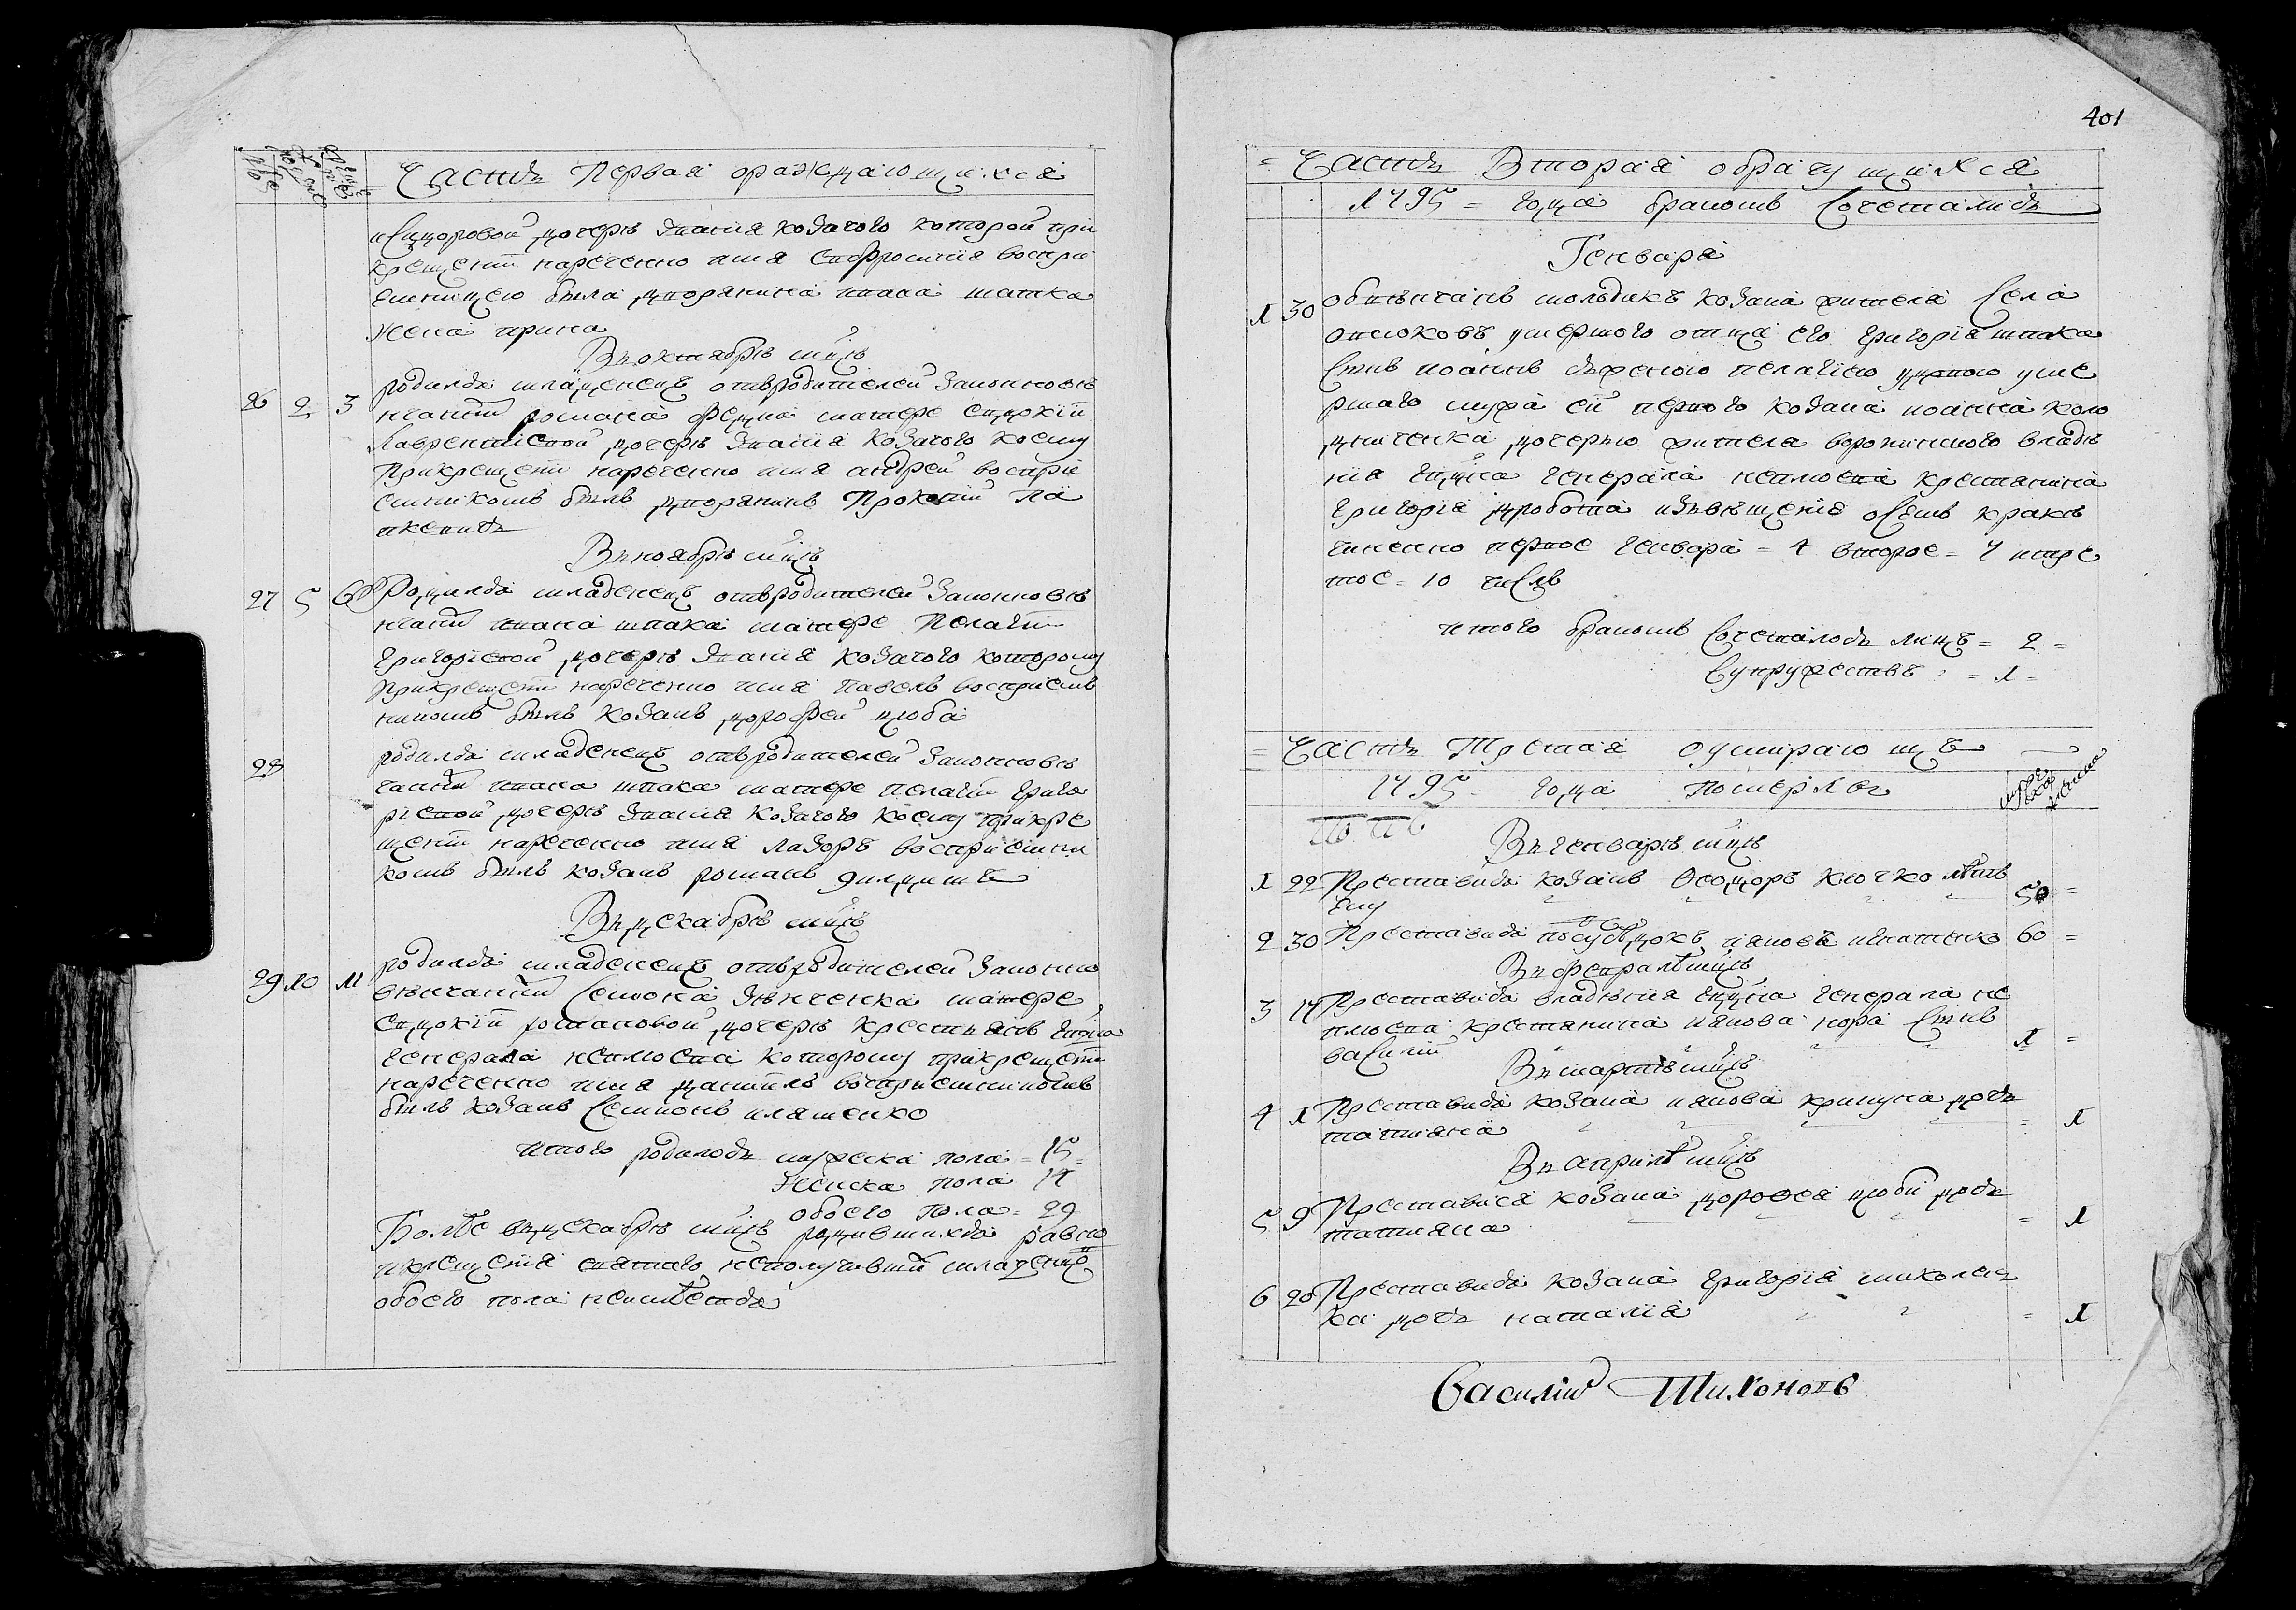 Часть Первая ораждающихся
исидоровой дочерѣ званія козачого которой при
крещеніи наречено имя Евфросинія воспри
емницею была дворянина ивана матка
жена ирина
Въ октябрѣ мцѣ
26 2 3 родилсь младенецъ отъ родителей законновѣ
нчанихъ романа матере Евдокіи
Лаврентіевой дочерѣ званія козачого коему
При крещеніи наречено имя андрей воспріе
емникомъ былъ дворянинъ Прокопій Па
Въ ноябрѣ мцѣ
27 5 6 Родилсь младенецъ отъ родителей законновѣ
нчанихъ ивана шпака матере Пелагіи
Григорієвой дочерѣ званія козачого которому
При крещеніи наречено имя Павелъ воспріем
никомъ былъ козакъ дорофей дзюба
28 родилсь младенецъ отъ родителей законновѣ
нчанихъ ивана шпака матере пелагіи Григо
рієвой дочерѣ званія козачого коему при кре
щеніи наречено имя лазоръ воспріемни
комъ былъ козакъ романъ
Въ декабрѣ мцѣ
29 10 11 родилсь младенецъ отъ родителей законно
вѣнчанихъ Семіона матере
Евдокіи романовой дочерѣ крестьянъ
генерала неплюева которому при крещеніи
наречено имя даніилъ воспріемникомъ
былъ козакъ Семіонъ иляшенко
итого родилось мужеска пола = 15 =
женска пола 14
обоего пола = 29
Болѣе въ декабрѣ мцѣ родившихся равно
и крещенія святаго неполучившихъ младенцевъ
обоего пола неимѣется
401
= Часть Вторая обрачущихся
1795 = года бракомъ Сочетались
Генваря
1 30 обвѣнчанъ козака жителя Села
умершого отца его Григорія шпака
Сынъ иоаннъ зъ женою пелагіею вдовою уме
ршаго мужа ей первого козака иоанна коло
дниченка дочерью жителя воронинского владѣ
нія генерала неплюева крестянина
Григорія извѣщенія осемъ бракѣ
чиненно первое генваря = 4 второе = 7 и тре
тое = 10 числъ
итого бракомъ Сочеталось лицъ = 2 =
Супружествъ = 1 =
= Часть Третая оумирающихъ
1795 = года Померлы
мужеска женска
Въ генварѣ мцѣ
1 22 Преставилсь козакъ Ѳеодоръ клочко лѣтъ
ему 50 =
2 30 Преставилсь яковъ игнатенко 60 =
Въ февралѣ мцѣ
3 14 Преставилсь владѣнія генерала не
плюева крестянина якова Сынъ
василій 1 =
Въ мартѣ мцѣ
4 1 Преставилсь козака якова крикуна дочь
татияна = 1
Въ априлѣ мцѣ
5 9 Преставися козака дорофея дзюби дочь
татияна = 1
6 20 Преставилсь козака Григорія миколен
ка дочь наталія = 1
Василій Тихоновъ